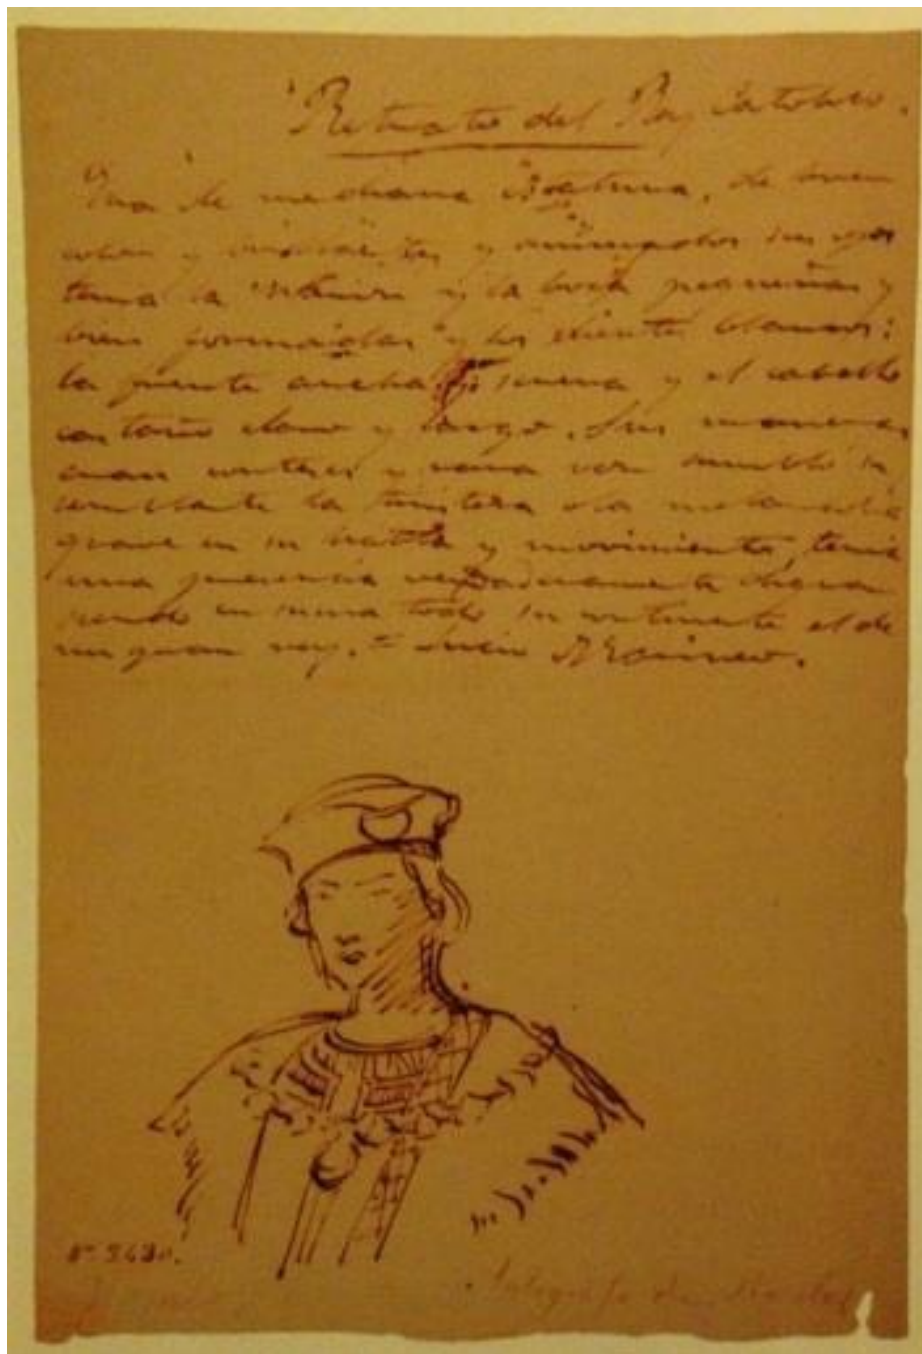 Retrato del Rey Catolico.
Era de mediana estatura, de buen
color y y sus ojos
tenia la y la boca pequeñas y
bien formadas y los dientes blancos:
la frente ancha y serena y el cabello
castaño claro y largo. Sus maneras
eran corteses y rara vez su
semblante la tristeza o la melancolia
grave en su habla y movimiento, tenia
una presencia verdaderamente digna
siendo en suma todo su continente el de
un gran rey. = Lucio Marineo.
Nº 5430.
Autografo de